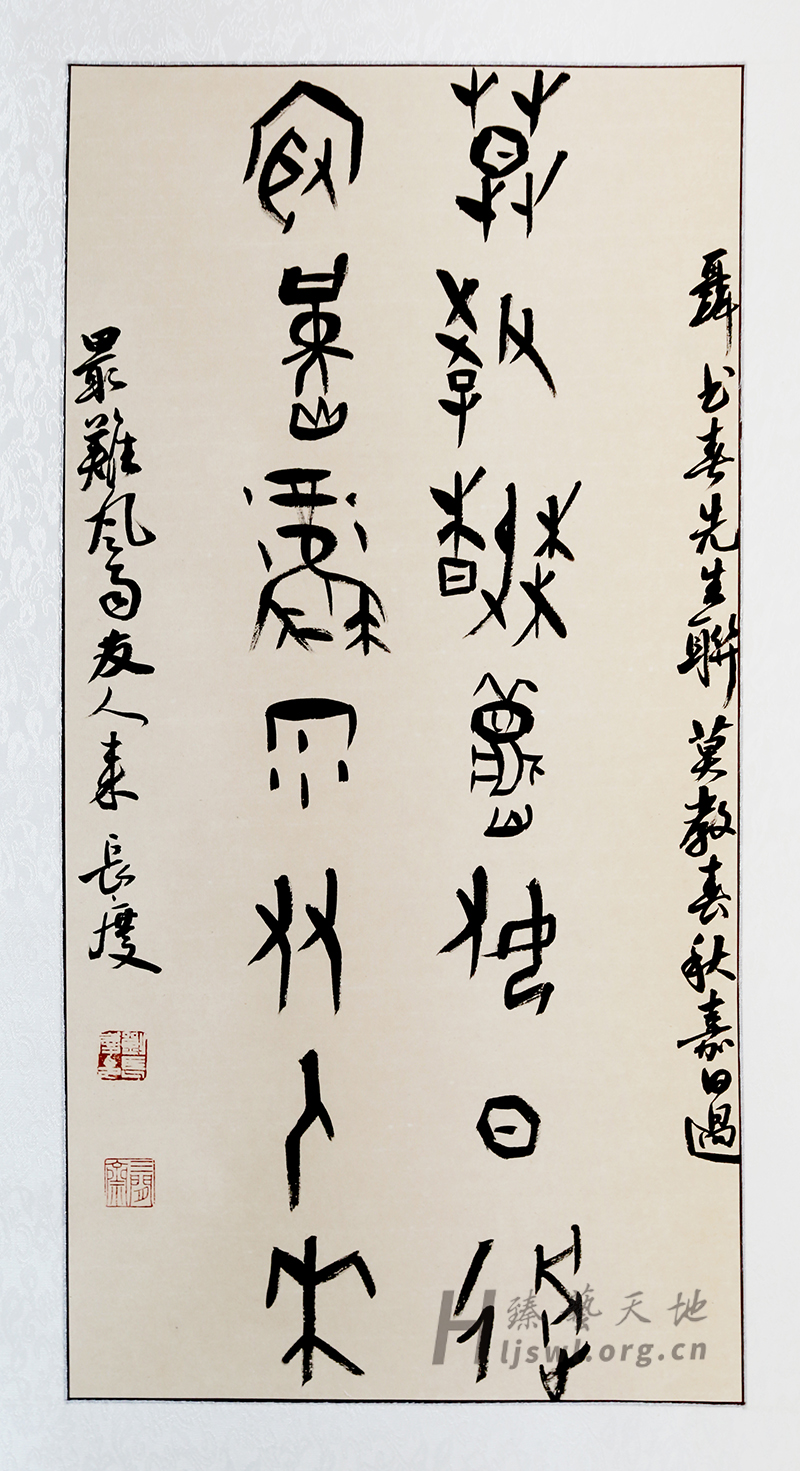 聶书春先生聯 莫教春秋嘉日過
莫教春秋嘉日過
最難風雨友人來
最難風雨友人來 長慶
臻藝天地
Hljswl.org.cn